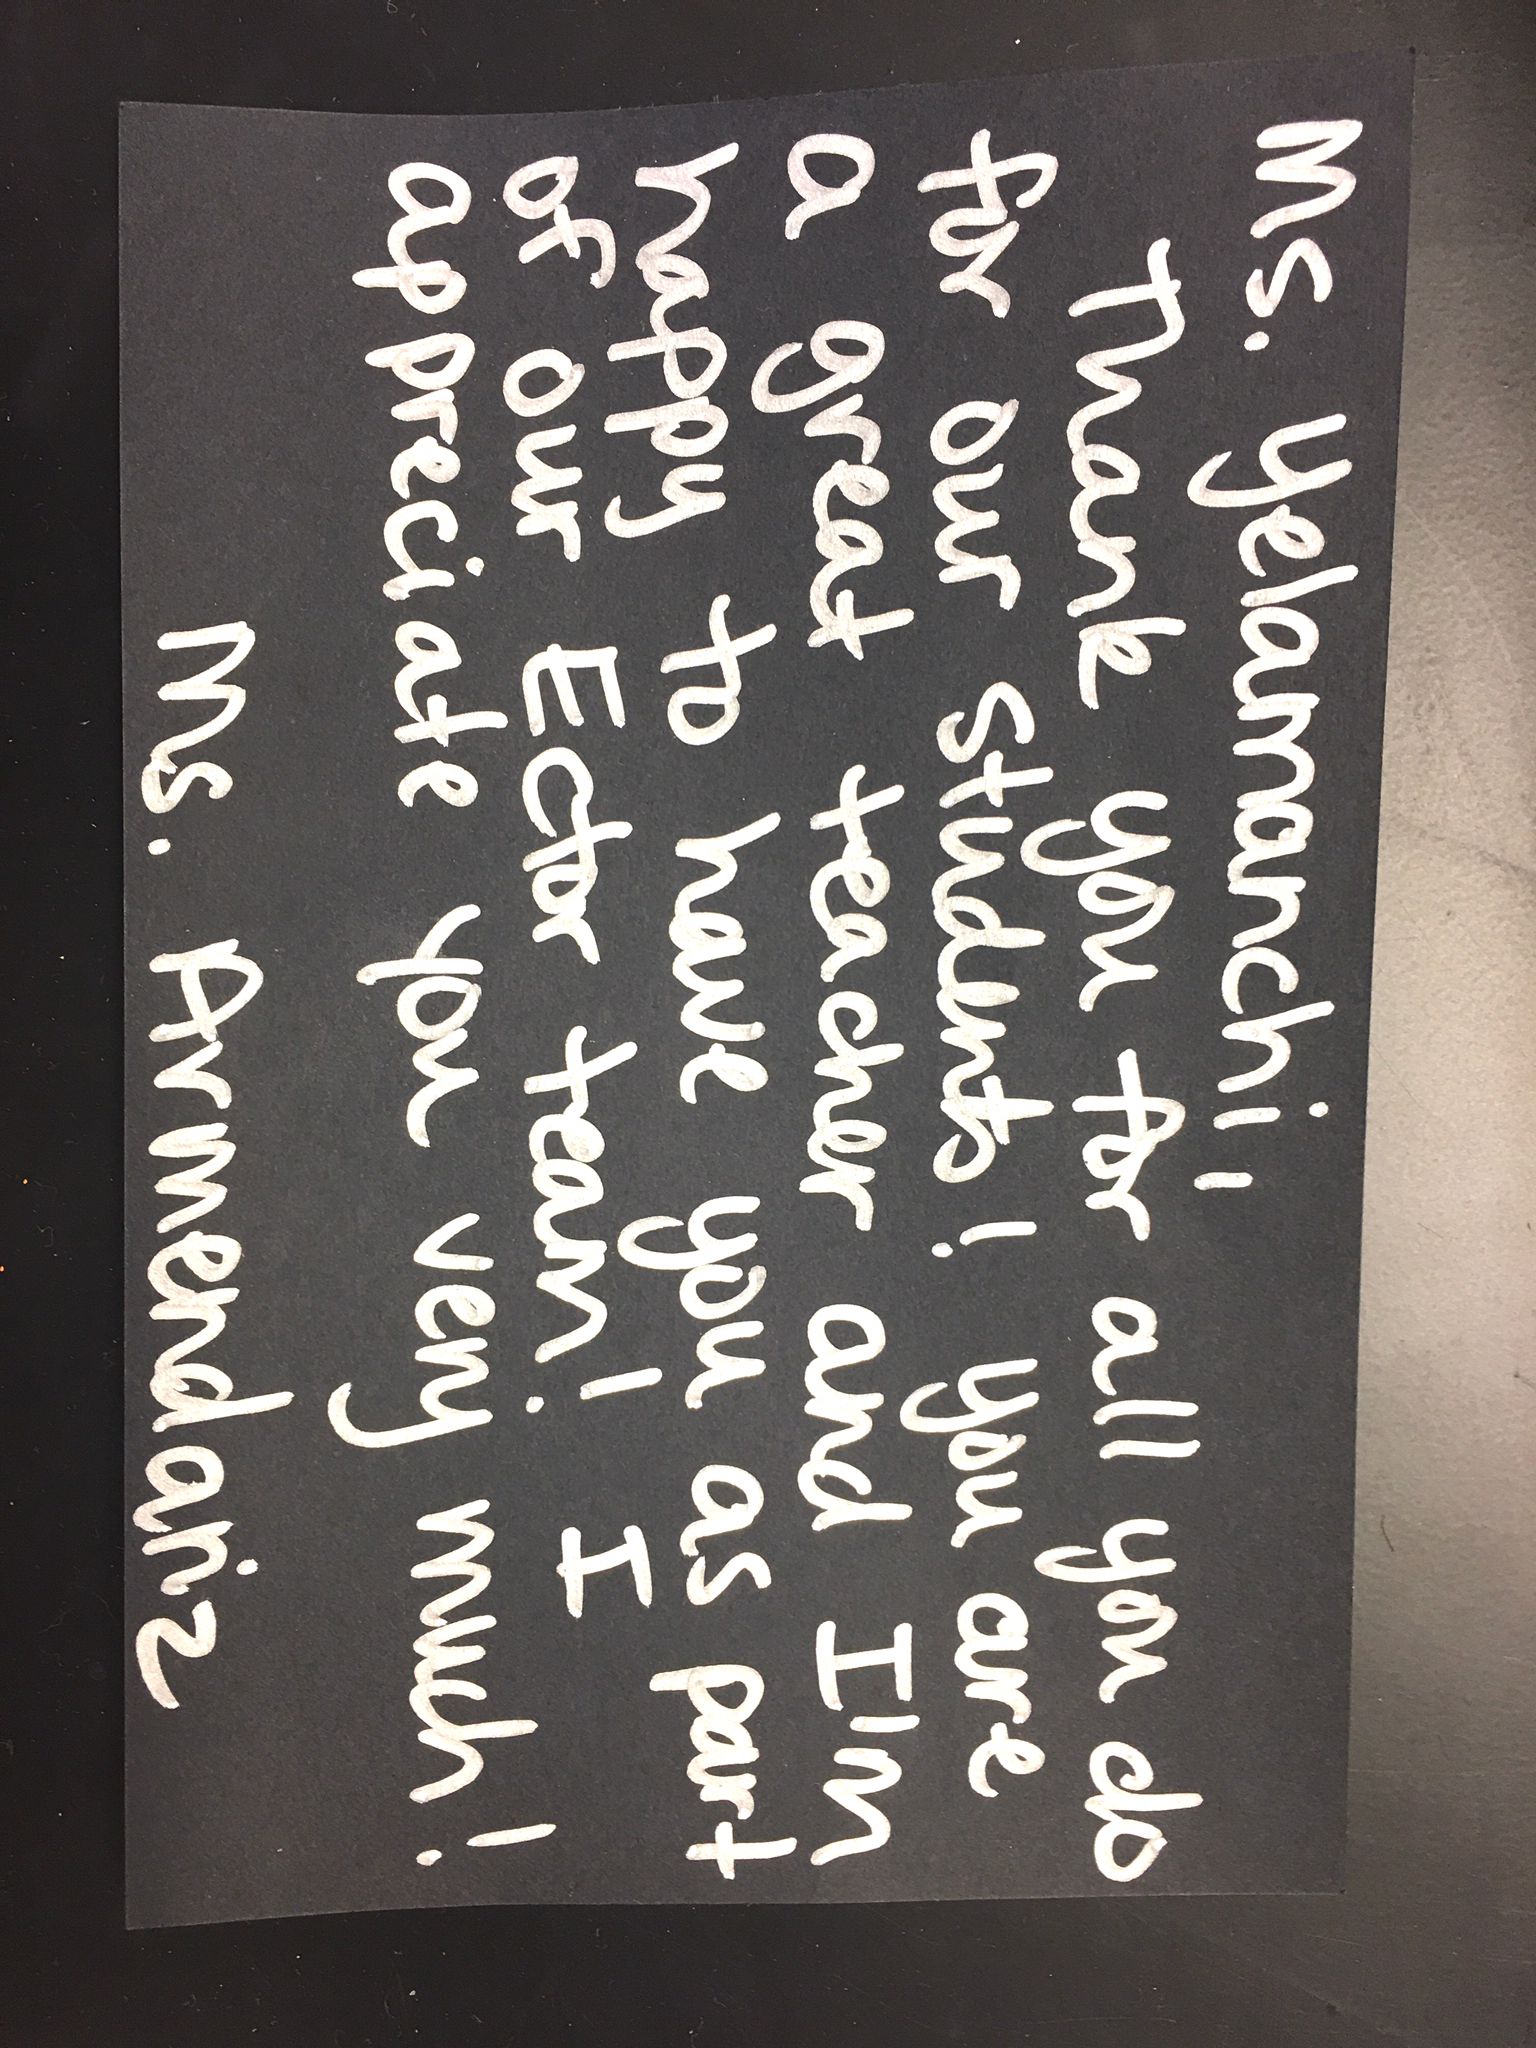 Ms. Yelamanchi,
Thank you for all you do
for our students! You are
a great teacher and I'm
happy to have you as part
of our Ector team! I
appreciate you very much!
Ms. Armendariz